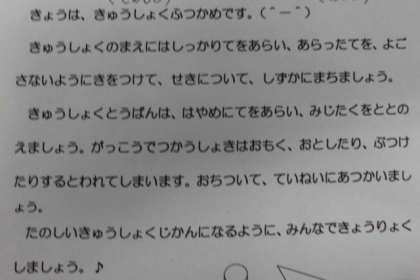 きょうは、きゅうしょくふつかめです。(＾－＾)
きゅうしょくのまえにはしっかりてをあらい、あらったてを、よご
さないようにきをつけて、せきについて、しずかにまちましょう。
きゅうしょくとうばんは、はやめにてをあらい、みじたくをととの
えましょう。がっこうでつかうしょきはおもく、おとしたり、ぶつけ
たりするとわれてしまいます。おちついて、ていねいにあつかいまし
ょう。
たのしいきゅうしょくじかんになるように、みんなできょうりょく
しましょう。♪